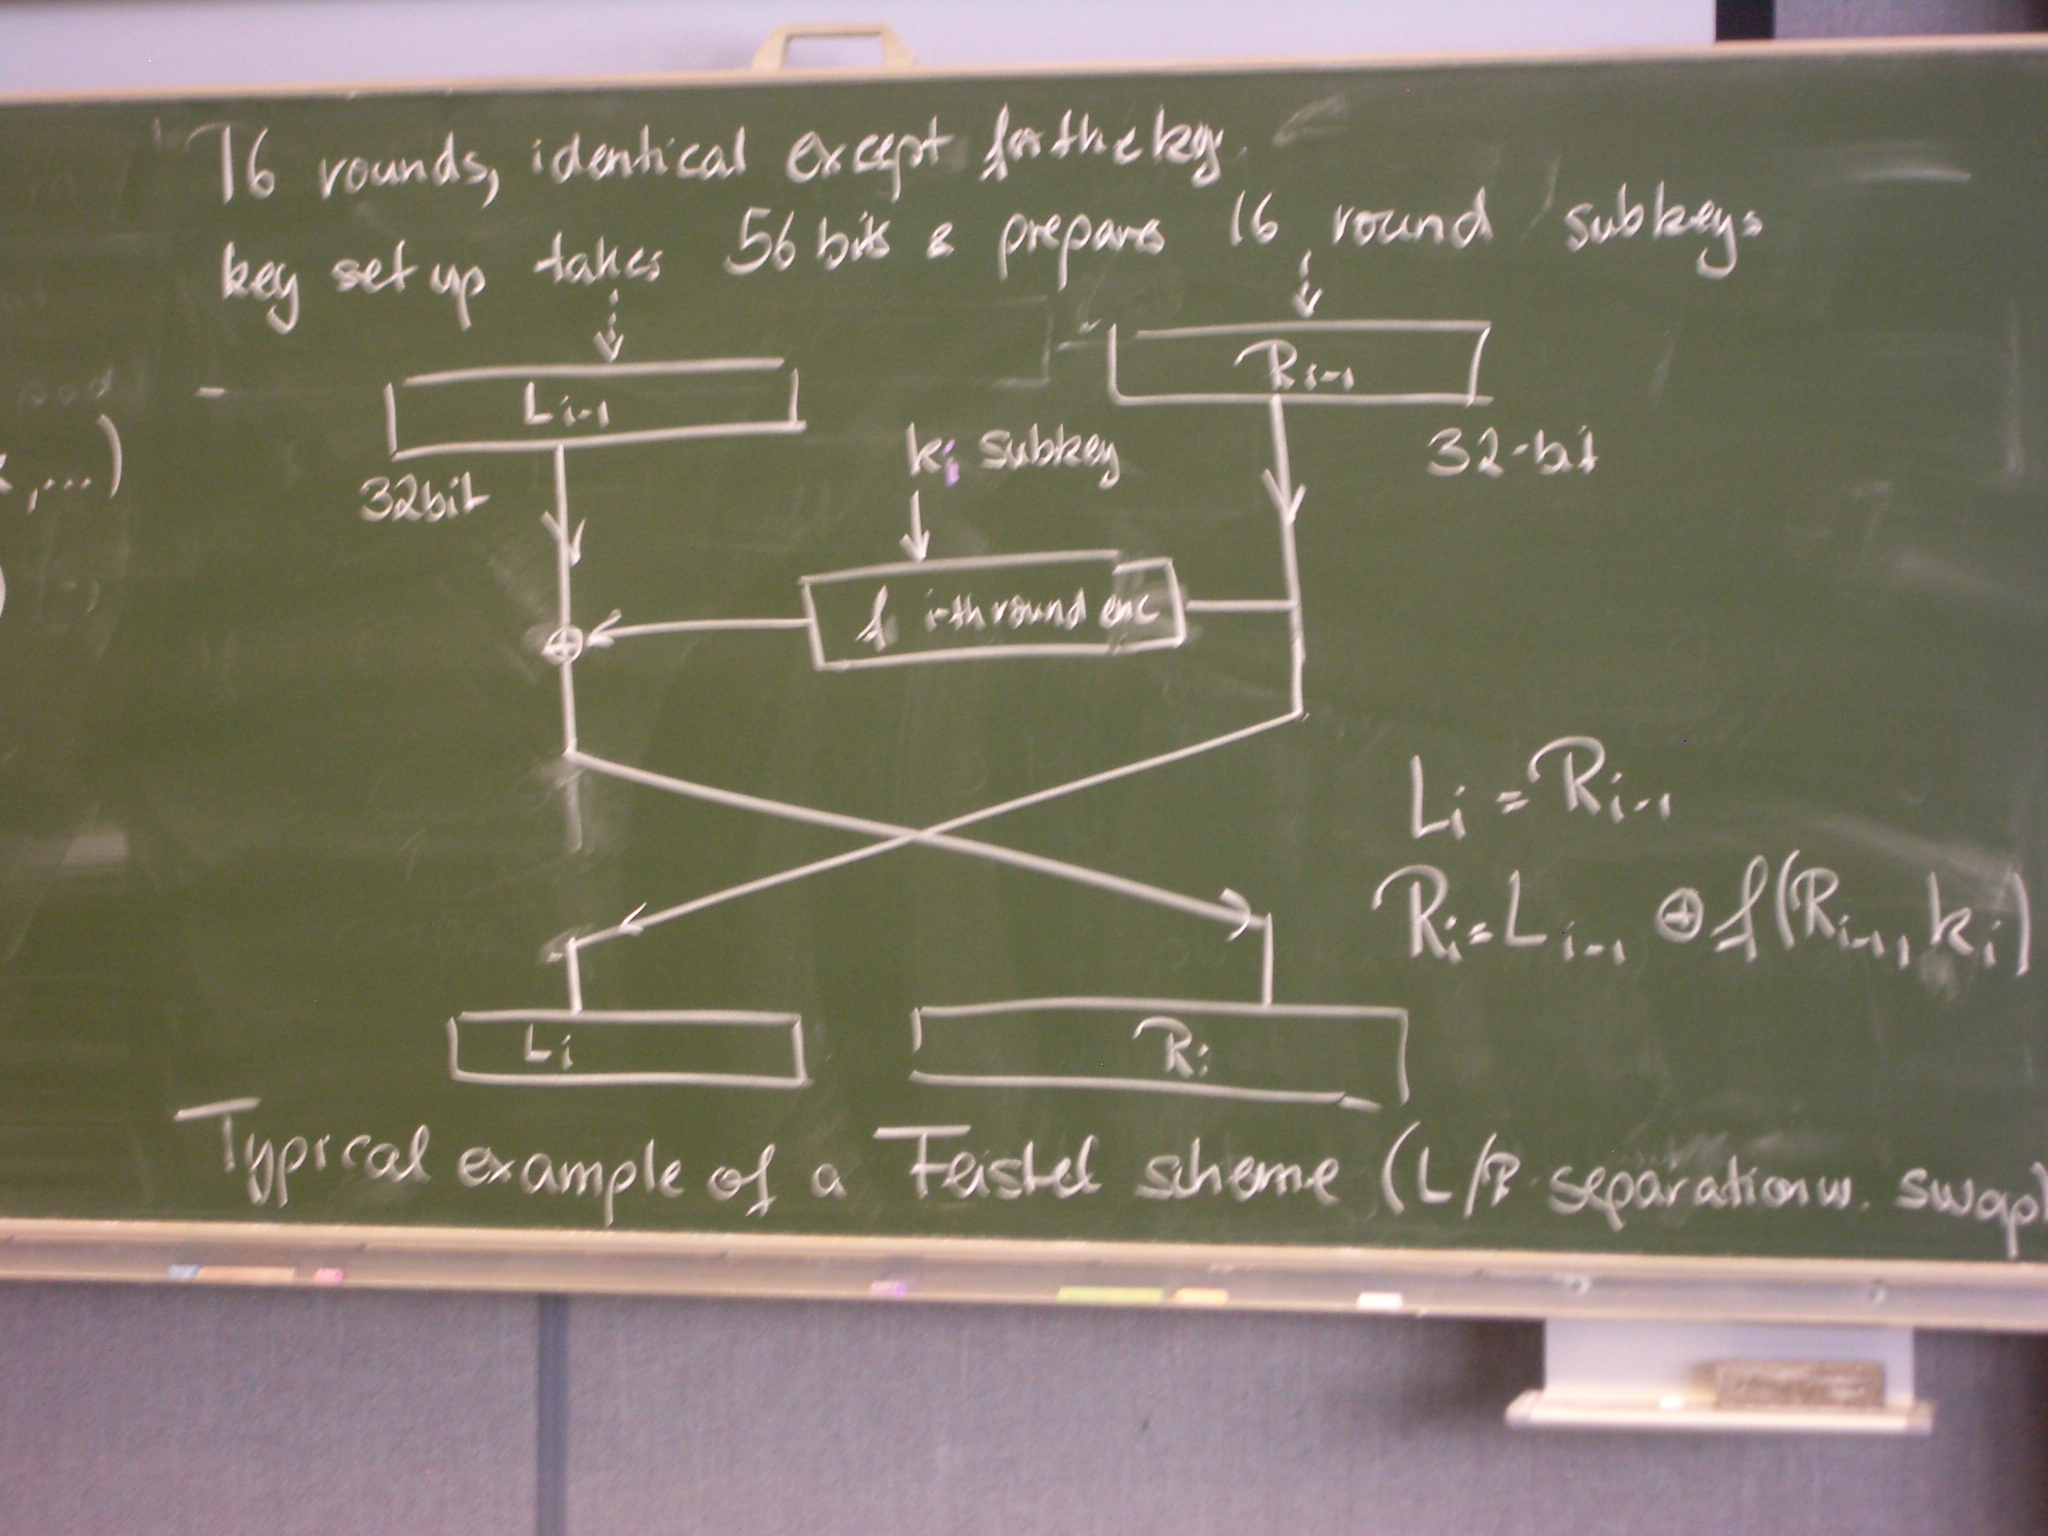 16 rounds, identical except for the key.
key set up takes 56 bits & prepares 16 round subkeys
L i-1
R i-1
32bit
ki subkey
32-bit
f i-th round enc
⊕
Li = Ri-1
Ri = Li-1 ⊕ f(Ri-1, ki)
Li
Ri
Typical example of a Feistel scheme (L/R separation w. swap)
,...)